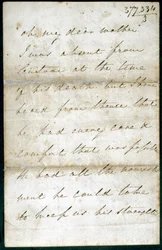 377,334
3
oh my dear mother
I was absent from
at the time
of his death but I have
heard from thence that
he had every care &
comfort that was possible
he had all the nourish
ment he could take
to keep up his strength